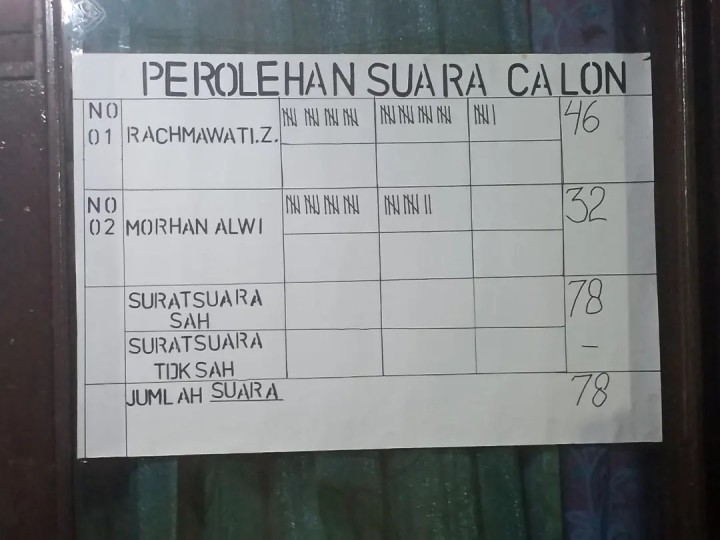 PEROLEHAN SUARA CALON
NO 01 RACHMAWATI.Z. 46
NO 02 MORHAN ALWI 32
SURATSUARA SAH 78
SURATSUARA TIDK SAH –
JUMLAH SUARA 78